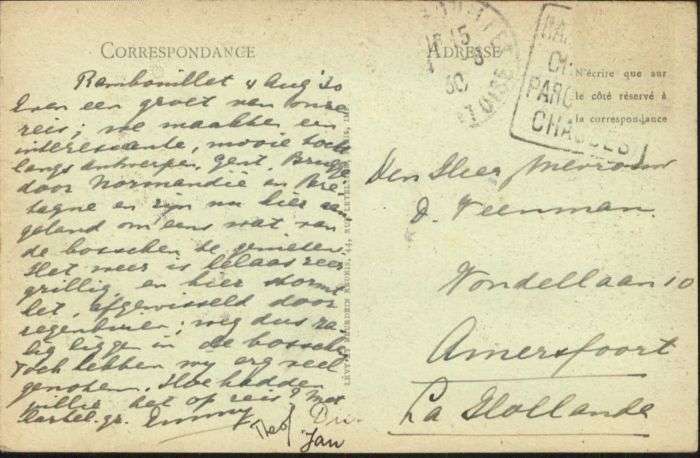 CORRESPONDANCE
Rambouillet 4 Aug '30
Even een groet van onze
reis; we maakten een
interessante, mooie tocht
langs Antwerpen, Gent, Brugge
door Normandië en Bre-
tagne en zijn nu hier aan
geland om eens wat van
de bosschen te genieten.
Het weer is helaas zeer
grillig, en hier stormt
het, afgewisseld door
regenbuien; weg dus za
lig liggen in de bosschen
Toch hebben wij erg veel
genoten. Hoe hadden
jullie het op reis? Met
hartel. gr. Emmy
Theo Jan
ADRESSE
N'écrire que sur
le côté réservé à
la correspondance
OISE
PARC
CHASSES
Den Heer Mevrouw
D. Veenman.
Vondellaan 10
Amersfoort
La Hollande